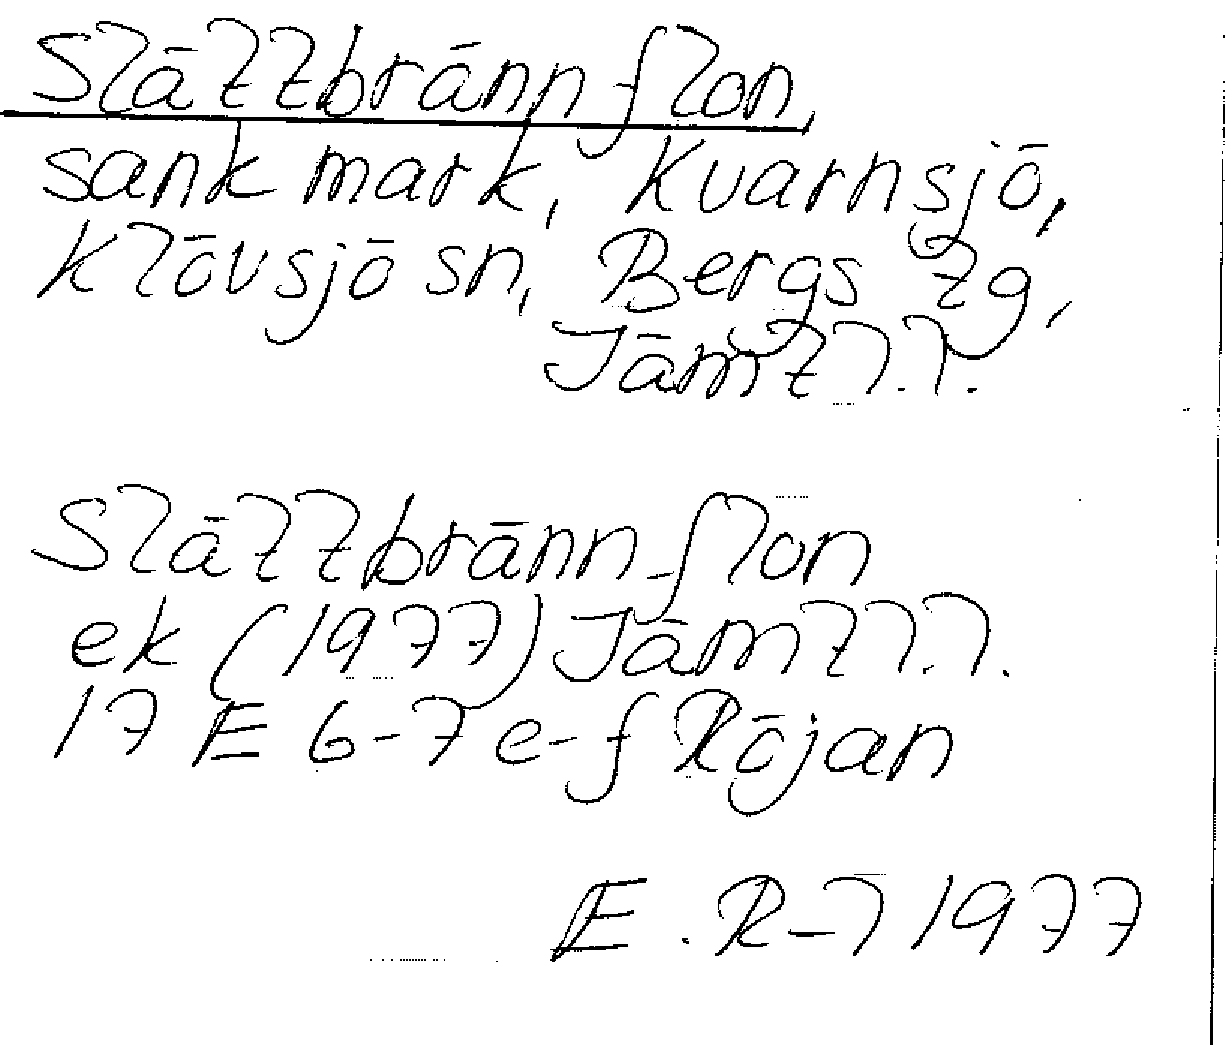 Slättbrännflon,
sank mark, Kvarnsjö,
Klövsjö sn, Bergs tg,
Jämtl.l.
Slättbrännflon
ek (1977) Jämtl.l.
17 E 6-7 e-f Röjan
E. R-l 1977